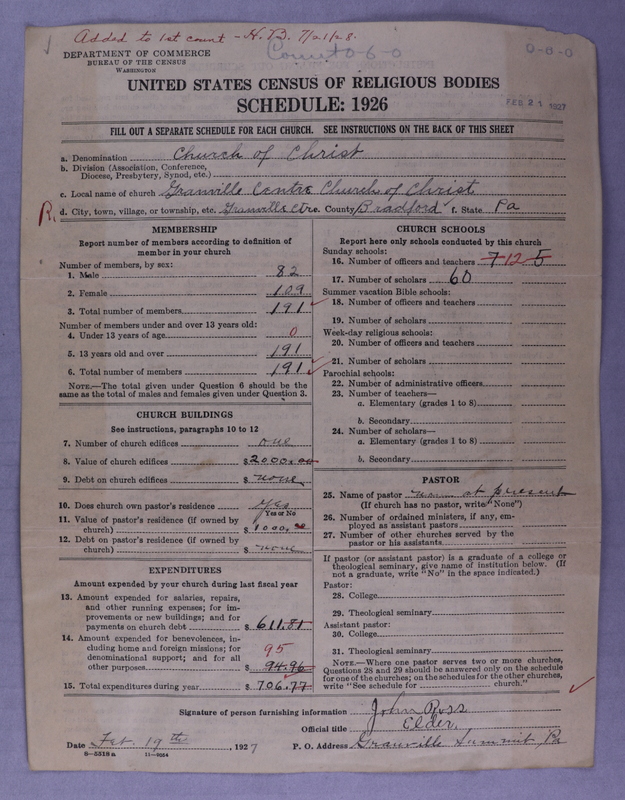 Added to 1st count - H.B. 7/21/28.
DEPARTMENT OF COMMERCE
BUREAU OF THE CENSUS
WASHINGTON
Count 0-6-0
0-8-0
UNITED STATES CENSUS OF RELIGIOUS BODIES
SCHEDULE: 1926
FEB 21 1927
FILL OUT A SEPARATE SCHEDULE FOR EACH CHURCH. SEE INSTRUCTIONS ON THE BACK OF THIS SHEET
a. Denomination Church of Christ
b. Division (Association, Conference, Diocese, Presbytery, Synod, etc.)
c. Local name of church Granville Centre Church of Christ
R. d. City, town, village, or township, etc. Granville Ctre. County Bradford f. State Pa
MEMBERSHIP
Report number of members according to definition of
member in your church
Number of members, by sex:
1. Male 82
2. Female 109
3. Total number of members 191
Number of members under and over 13 years old:
4. Under 13 years of age 0
5. 13 years old and over 191
6. Total number of members 191
NOTE.—The total given under Question 6 should be
same as the total of males and females given under Question 3.
CHURCH BUILDINGS
See instructions, paragraphs 10 to 12
7. Number of church edifices one
8. Value of church edifices $2000.00
9. Debt on church edifices $ none
10. Does church own pastor's residence? yes
Yes or No
11. Value of pastor's residence (if owned by
church) $1000.00
12. Debt on pastor's residence (if owned by
church) $ none
EXPENDITURES
Amount expended by your church during last fiscal year
13. Amount expended for salaries, repairs,
and other running expenses; for im-
provements or new buildings; and for
payments on church debt $ 611.81
14. Amount expended for benevolences, in-
cluding home and foreign missions; for 95
denominational support; and for all
other purposes $ 94.96
15. Total expenditures during year $ 706.77
CHURCH SCHOOLS
Report here only schools conducted by this church
Sunday schools:
16. Number of officers and teachers 7 12 5
17. Number of scholars 60
Summer vacation Bible schools:
18. Number of officers and teachers
19. Number of scholars
Week-day religious schools:
20. Number of officers and teachers
21. Number of scholars
Parochial schools:
22. Number of administrative officers
23. Number of teachers—
a. Elementary (grades 1 to 8)
b. Secondary
24. Number of scholars—
a. Elementary (grades 1 to 8)
b. Secondary
PASTOR
25. Name of pastor none at present
(If church has no pastor, write "None")
26. Number of ordained ministers, if any, em-
ployed as assistant pastors
27. Number of other churches served by the
pastor or his assistants
If pastor (or assistant pastor) is a graduate of a college or
theological seminary, give name of institution below. (If
not a graduate, write "No" in the space indicated.)
Pastor:
28. College
29. Theological seminary
Assistant pastor:
30. College
31. Theological seminary
NOTE.—Where one pastor serves two or more churches,
Questions 28 and 29 should be answered only on the schedule
for one of the churches; on the schedules for the other churches,
write "See schedule for church."
Signature of person furnishing information John Ross
Official title Elder.
Date Feb. 19th, 1927 P. O. Address Granville Summit, Pa
8—5518a 11—9024